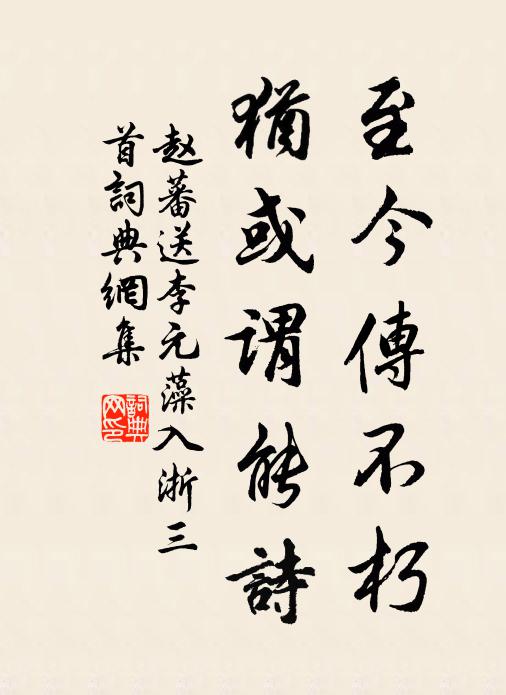 至今傳不朽
猶或謂能詩
赵蕃送李元藻入浙三
首詞典網集
詞典
网印